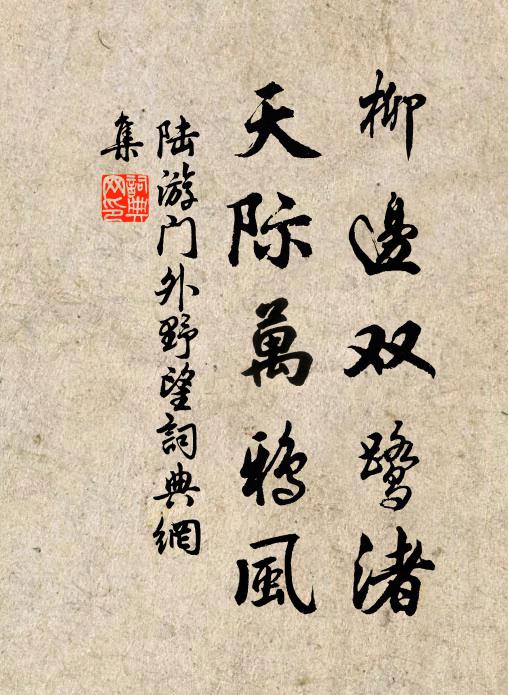 柳邊双鹭渚
天际萬鴉風
陆游门外野望詞典網
集
詞典
网印